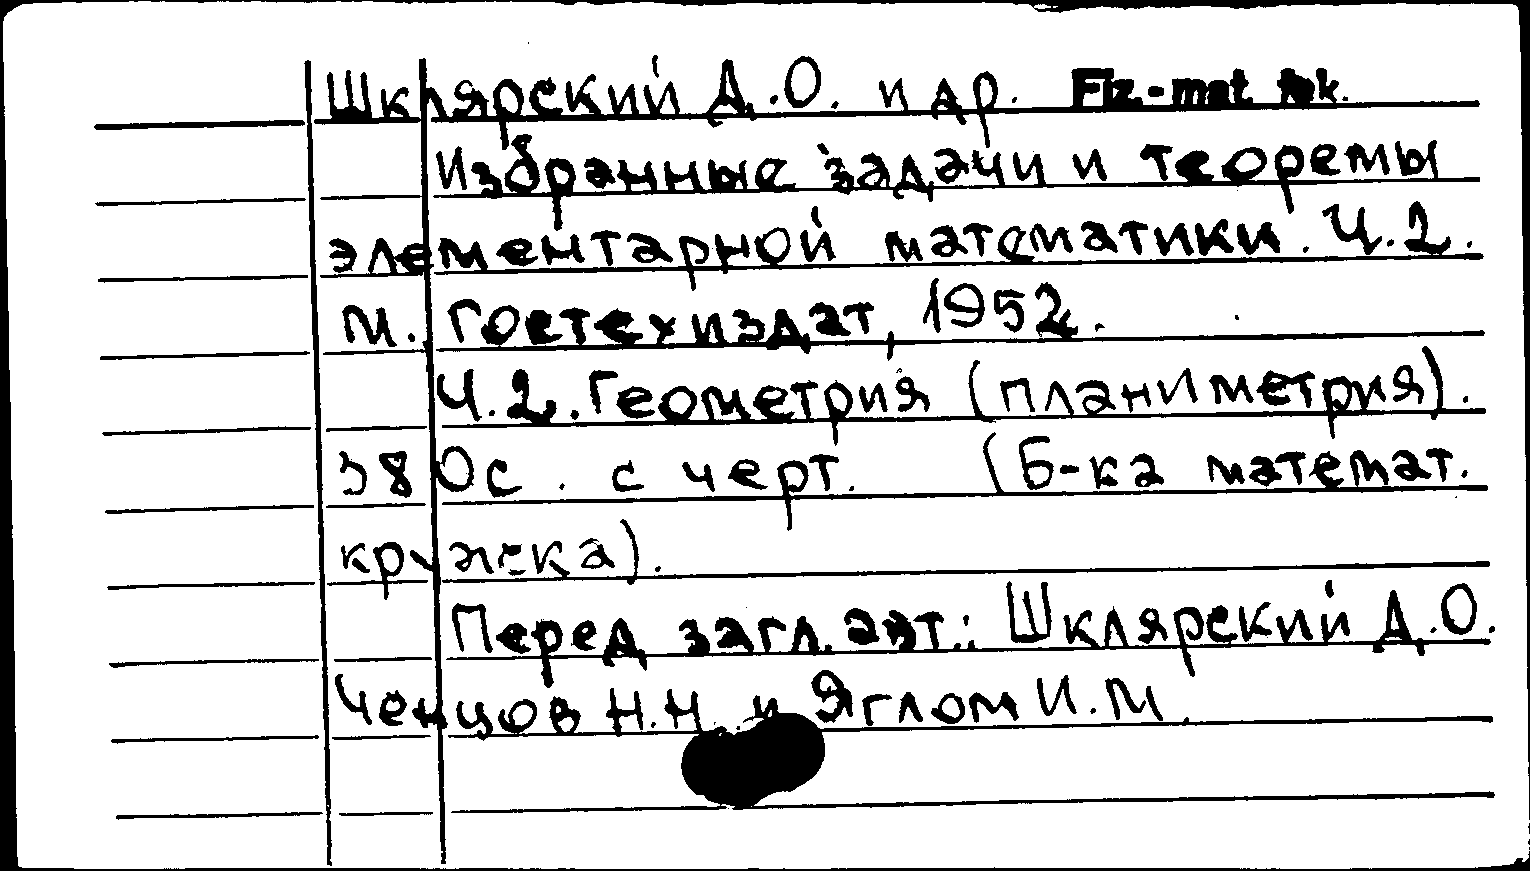 Шклярский Д.О. и др. Fiz.-mat fak.
Избранные задачи и теоремы
элементарной математики. Ч.2.
М. Гостехиздат, 1952.
Ч.2. Геометрия (планиметрия).
380с. с черт. (Б-ка математ.
кружка).
Перед загл. авт.: Шклярский Д.О.
Ченцов Н.Н. и Яглом И.М.